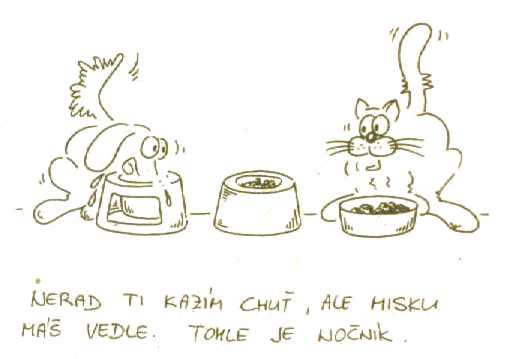 NERAD TI KAZÍM CHUŤ, ALE MISKU
MÁŠ VEDLE. TOHLE JE NOČNÍK.